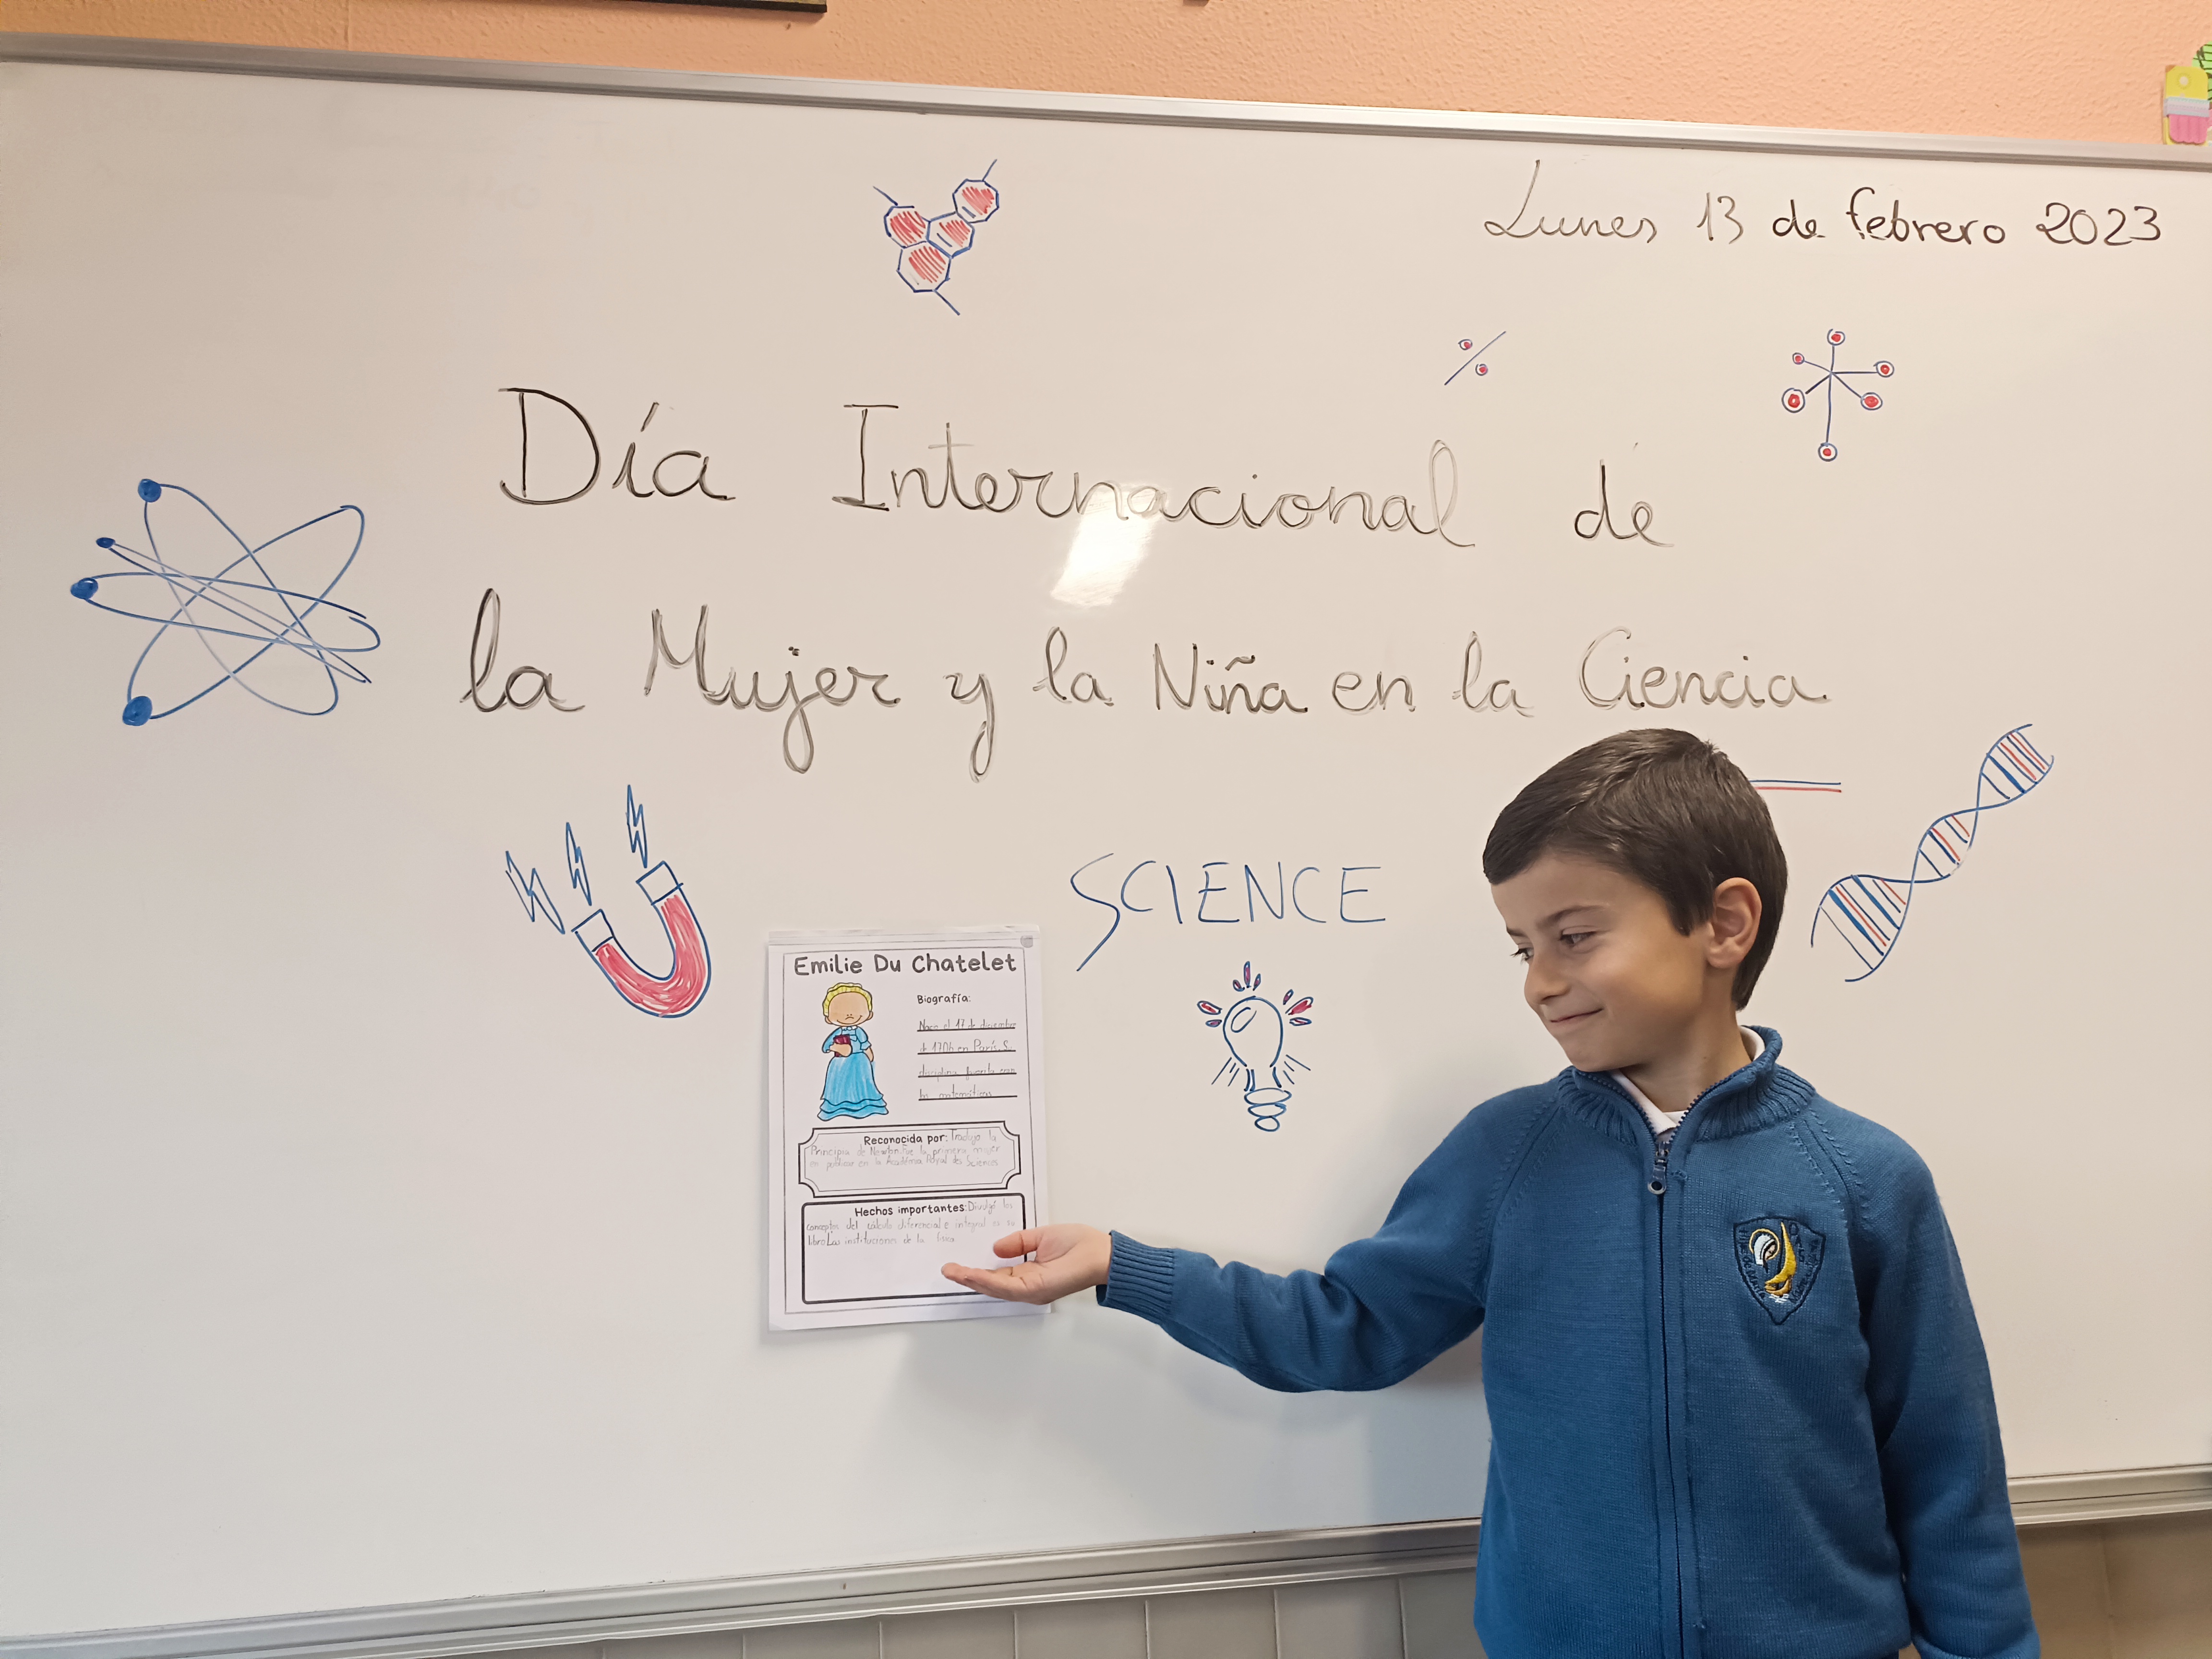 Lunes 13 de febrero 2023
Día Internacional de
la Mujer y la Niña en la Ciencia
SCIENCE
Emilie Du Chatelet
Biografía:
Nace el 17 de diciembre
de 1706 en París. Su
disciplina favorita eran
las matemáticas
Reconocida por: Tradujo la
Principia de Newton. Fue la primera mujer
en publicar en la Académia Royal des Sciences
Hechos importantes: Divulgó los
conceptos del cálculo diferencial e integral en su
libro Las instituciones de la física